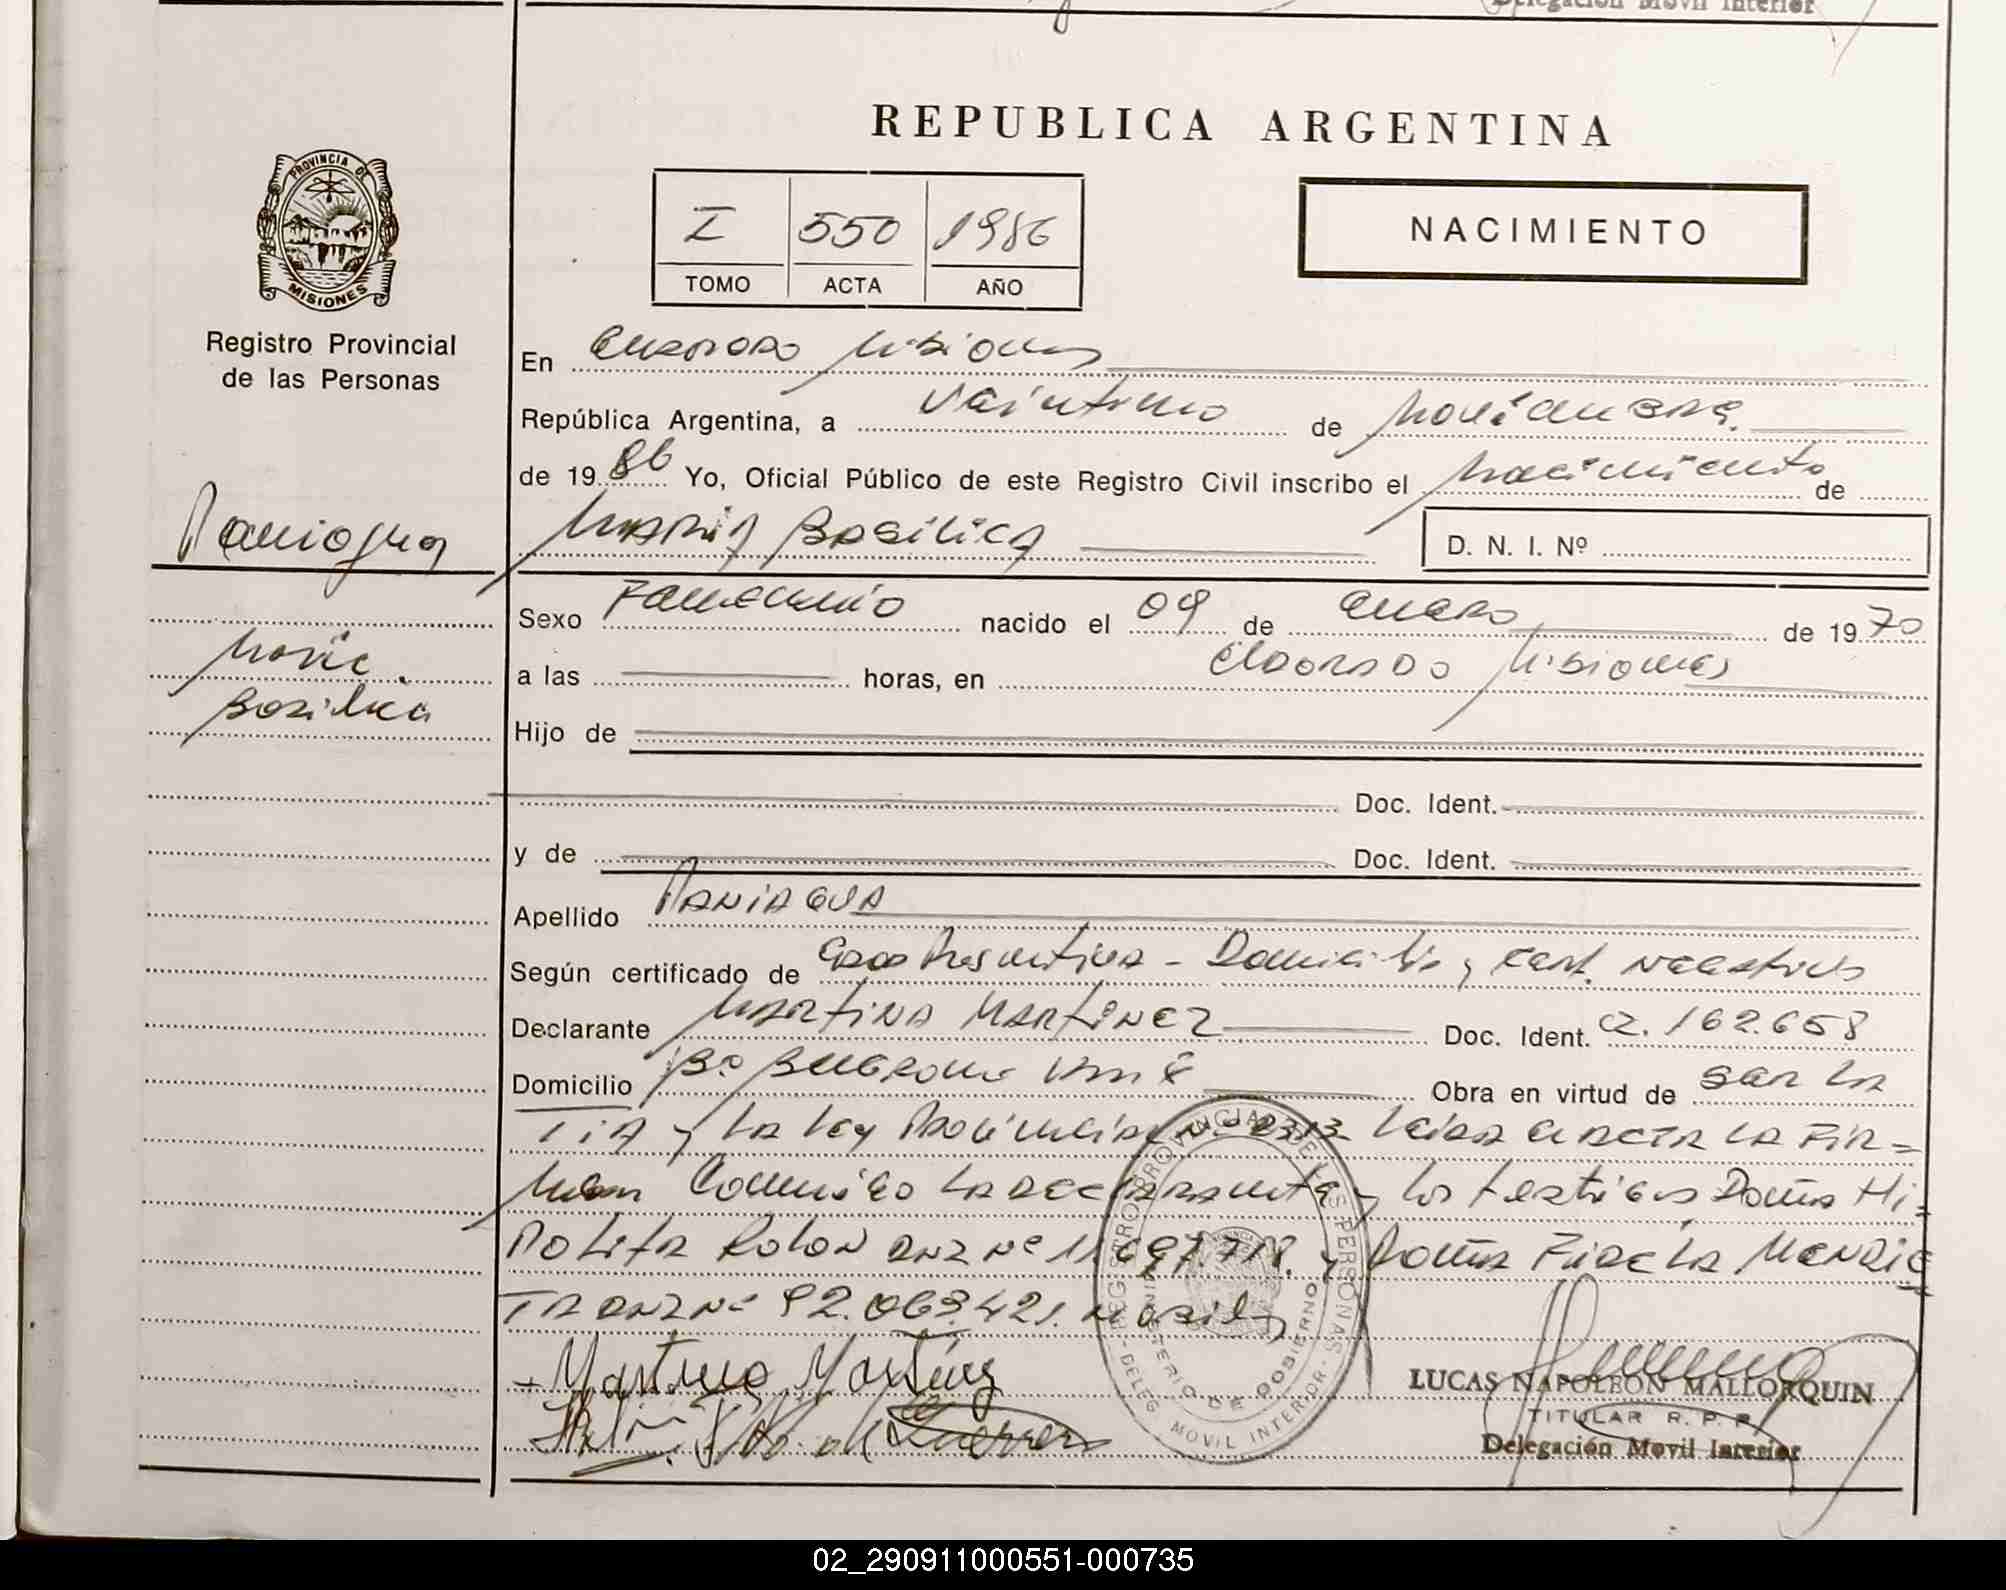 Delegación Movil Interior
REPUBLICA ARGENTINA
PROVINCIA DE
MISIONES
Registro Provincial
de las Personas
I 550 1986
TOMO ACTA AÑO
NACIMIENTO
En Eldorado Misiones
República Argentina, a Veintiuno de Noviembre
de 19 86 Yo, Oficial Público de este Registro Civil inscribo el Nacimiento de
Paniagua
Maria Basilica
D. N. I. Nº
Sexo Femenino nacido el 09 de Enero de 1970
Maria
Basilica
a las horas, en Eldorado Misiones
Hijo de
Doc. Ident.
y de Doc. Ident.
Apellido PANIAGUA
Según certificado de Domicilio y Cert. Negativo
Declarante MARTINA MARTINEZ Doc. Ident. CI. 162.658
Domicilio Bº Belgrano Obra en virtud de Ser la
TIA y la Ley Provincial Nº 2313 Leida el Acta la Fir=
man Conmigo la declarante y los testigos Doña Hi=
polita Rolon DNI Nº 11.697.718. y Doña Fidela Mendie
TA DNI Nº 92.063.421.
- Martina Martinez
REGISTRO PROVINCIAL DE LAS PERSONAS
MINISTERIO DE GOBIERNO
DELEG. MOVIL INTERIOR
LUCAS NAPOLEON MALLORQUIN
TITULAR R. P. P.
Delegación Movil Interior
02_290911000551-000735